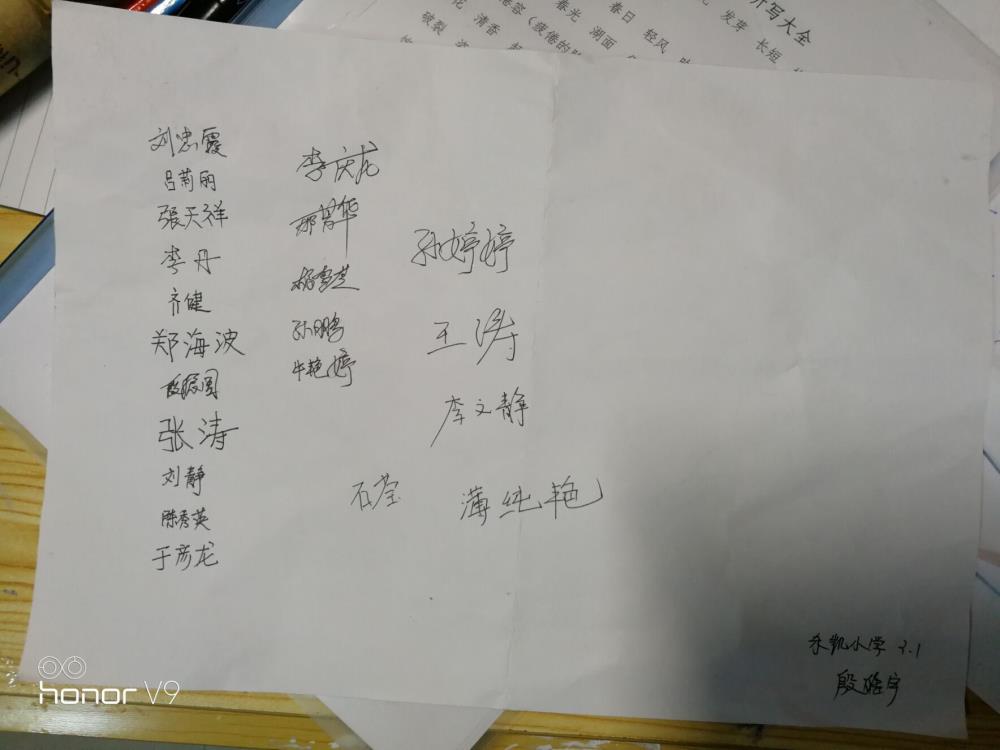 听写大全
发芽 长短
春日 轻风
春光 湖面
清香
破裂
刘忠霞
吕菊丽
張天祥
李丹
齐健
郑海波
殷振国
张涛
刘静
陈秀英
于彦龙
李庆龙
邢曾华
杨雪芝
孙鹏
牛艳婷
孙婷婷
王涛
李文静
石莹
薄纯艳
永凯小学 2.1
honor V9